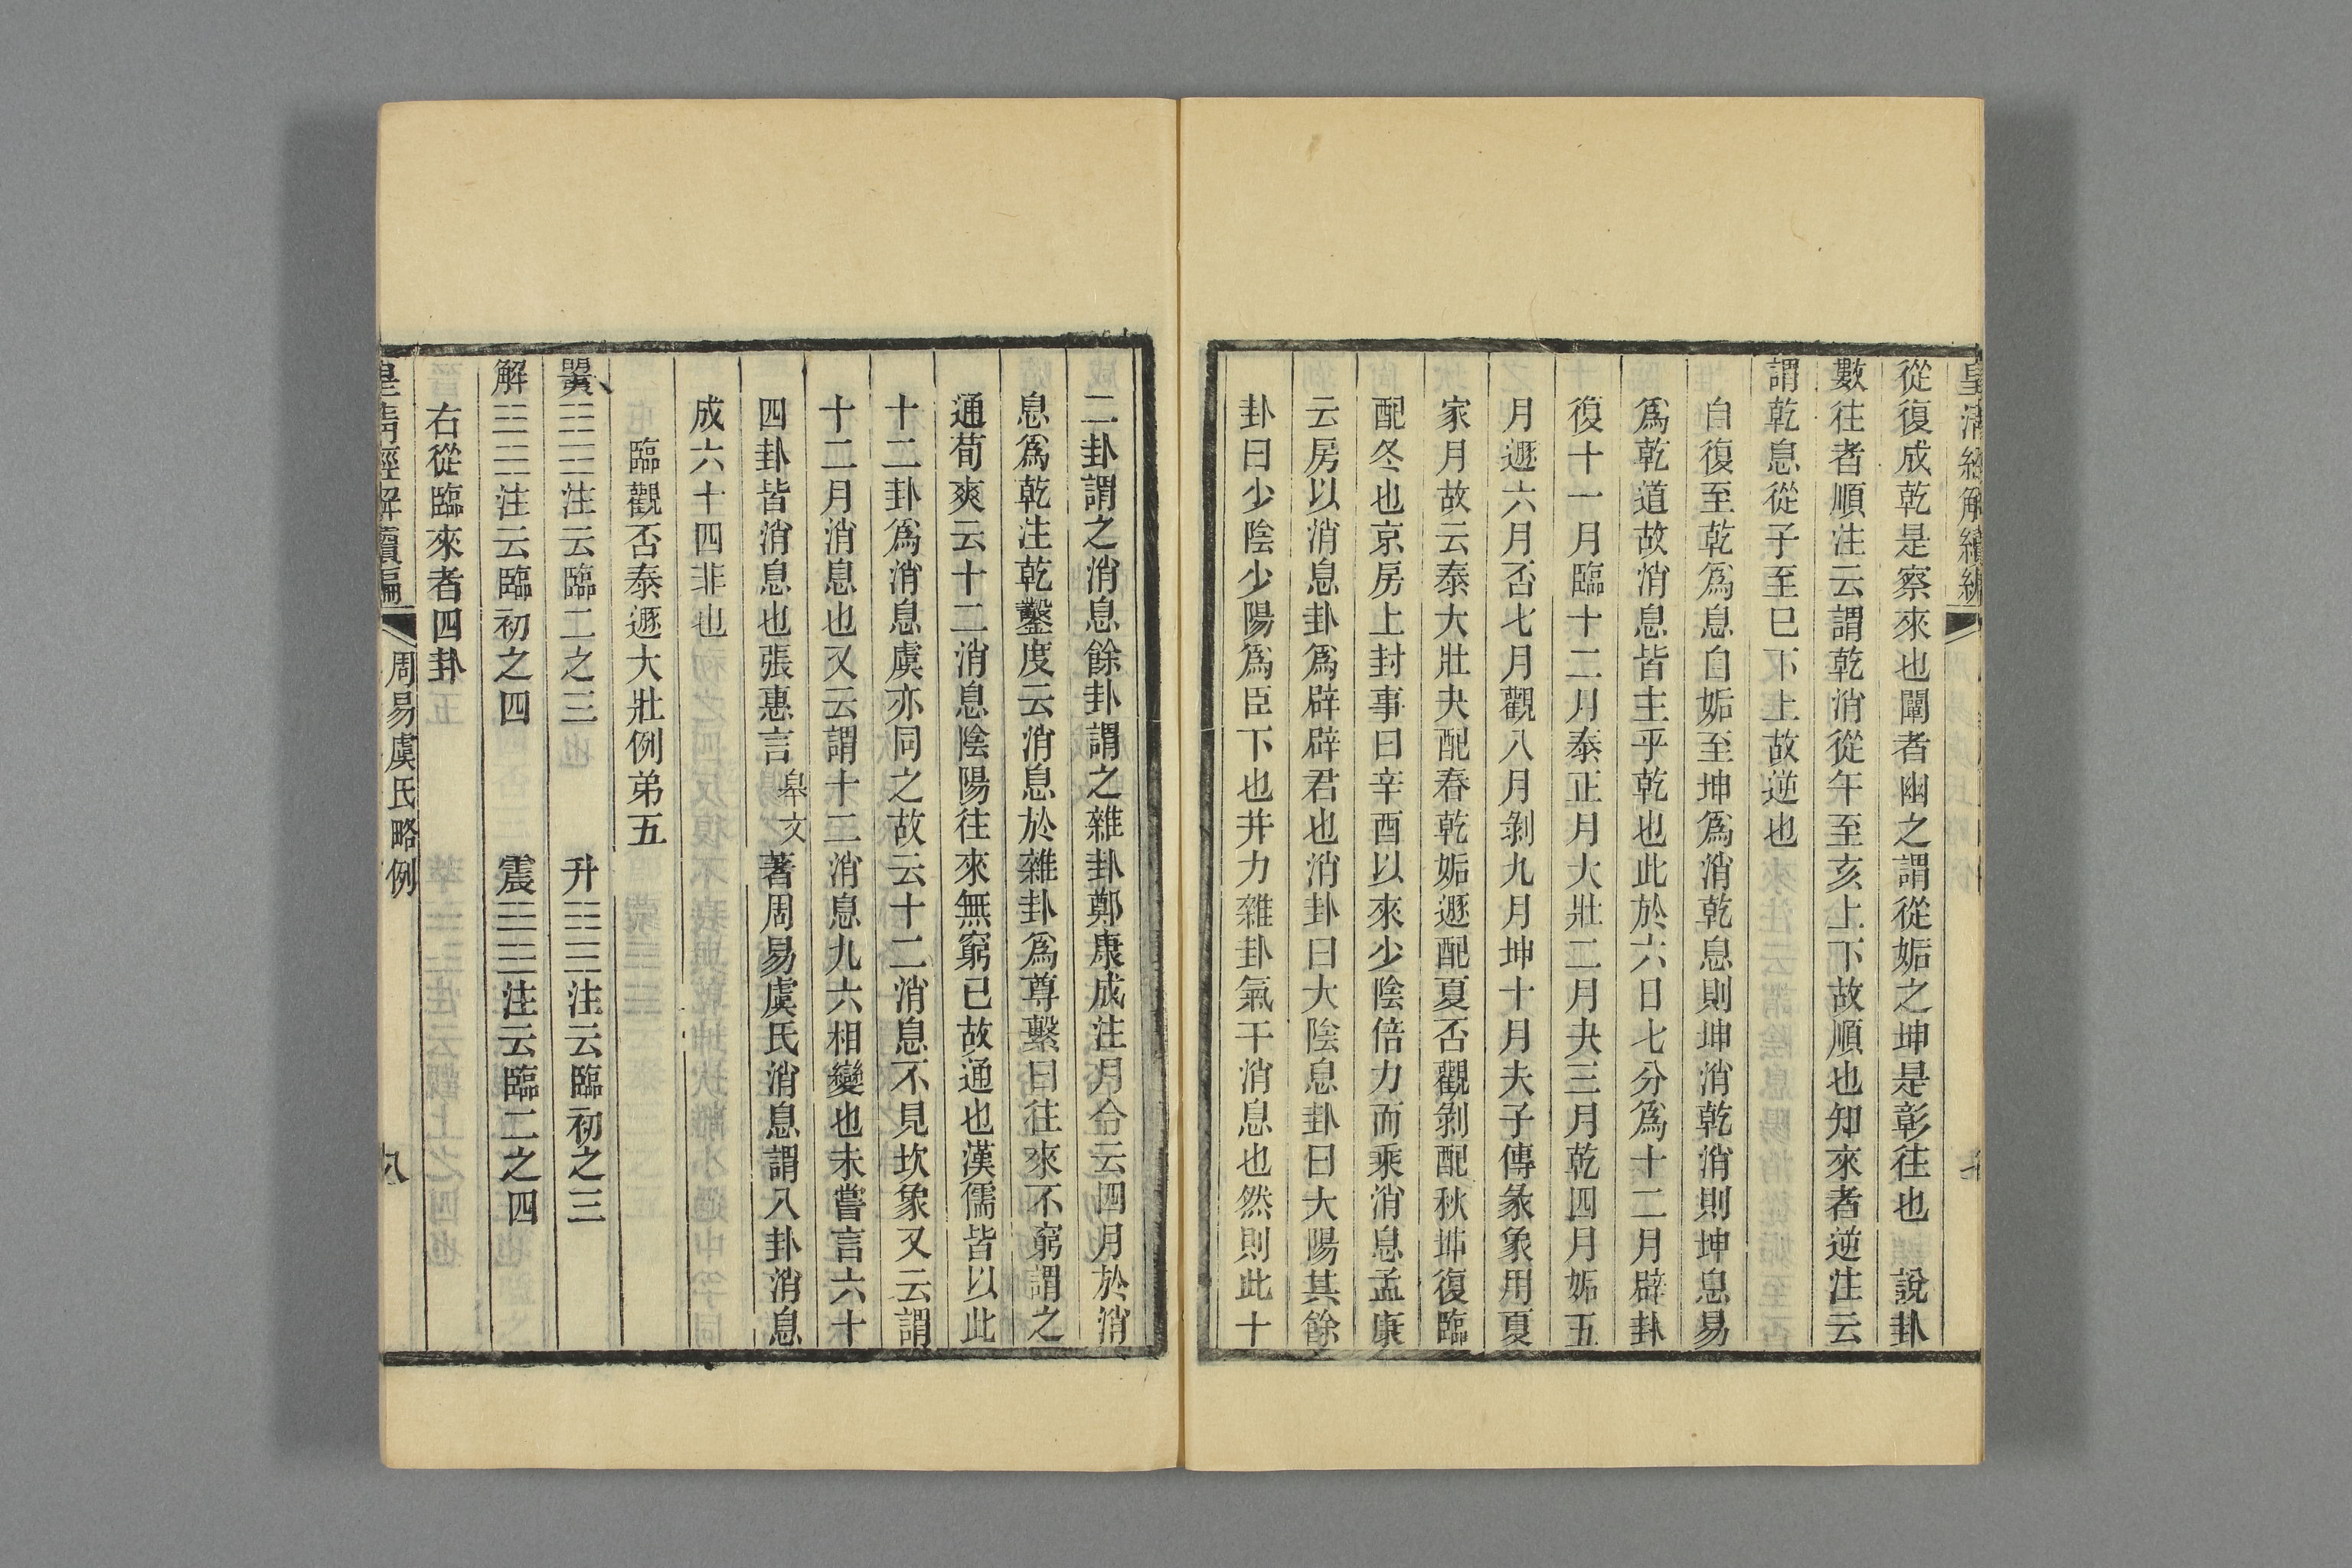 皇清經解續編
從復成乾是察來也闡者幽之謂從姤之坤是彰往也 說卦
數往者順注云謂乾消從午至亥上下故順也知來者逆注云
謂乾息從子至巳下上故逆也
自復至乾爲息自姤至坤爲消乾息則坤消乾消則坤息易
爲乾道故消息皆主乎乾也此於六日七分爲十二月辟卦
復十一月臨十二月泰正月大壯二月夬三月乾四月姤五
月遯六月否七月觀八月剝九月坤十月夫子傳彖象用夏
家月故云泰大壯夬配春乾姤遯配夏否觀剝配秋坤復臨
配冬也京房上封事曰辛酉以來少陰倍力而乘消息孟康
云房以消息卦爲辟辟君也消卦曰大陰息卦曰大陽其餘
卦曰少陰少陽爲臣下也并力雜卦氣干消息也然則此十
二卦謂之消息餘卦謂之雜卦鄭康成注月令云四月於消
息爲乾注乾鑿度云消息於雜卦爲尊繫曰往來不窮謂之
通荀爽云十二消息陰陽往來無窮已故通也漢儒皆以此
十二卦爲消息虞亦同之故云十二消息不見坎象又云謂
十二月消息也又云謂十二消息九六相變也未嘗言六十
四卦皆消息也張惠言皋文著周易虞氏消息謂八卦消息
成六十四非也
臨觀否泰遯大壯例弟五
䷣注云臨二之三 升䷭注云臨初之三
解䷧注云臨初之四 震䷲注云臨二之四
右從臨來者四卦
皇清經解續編 周易虞氏略例 八